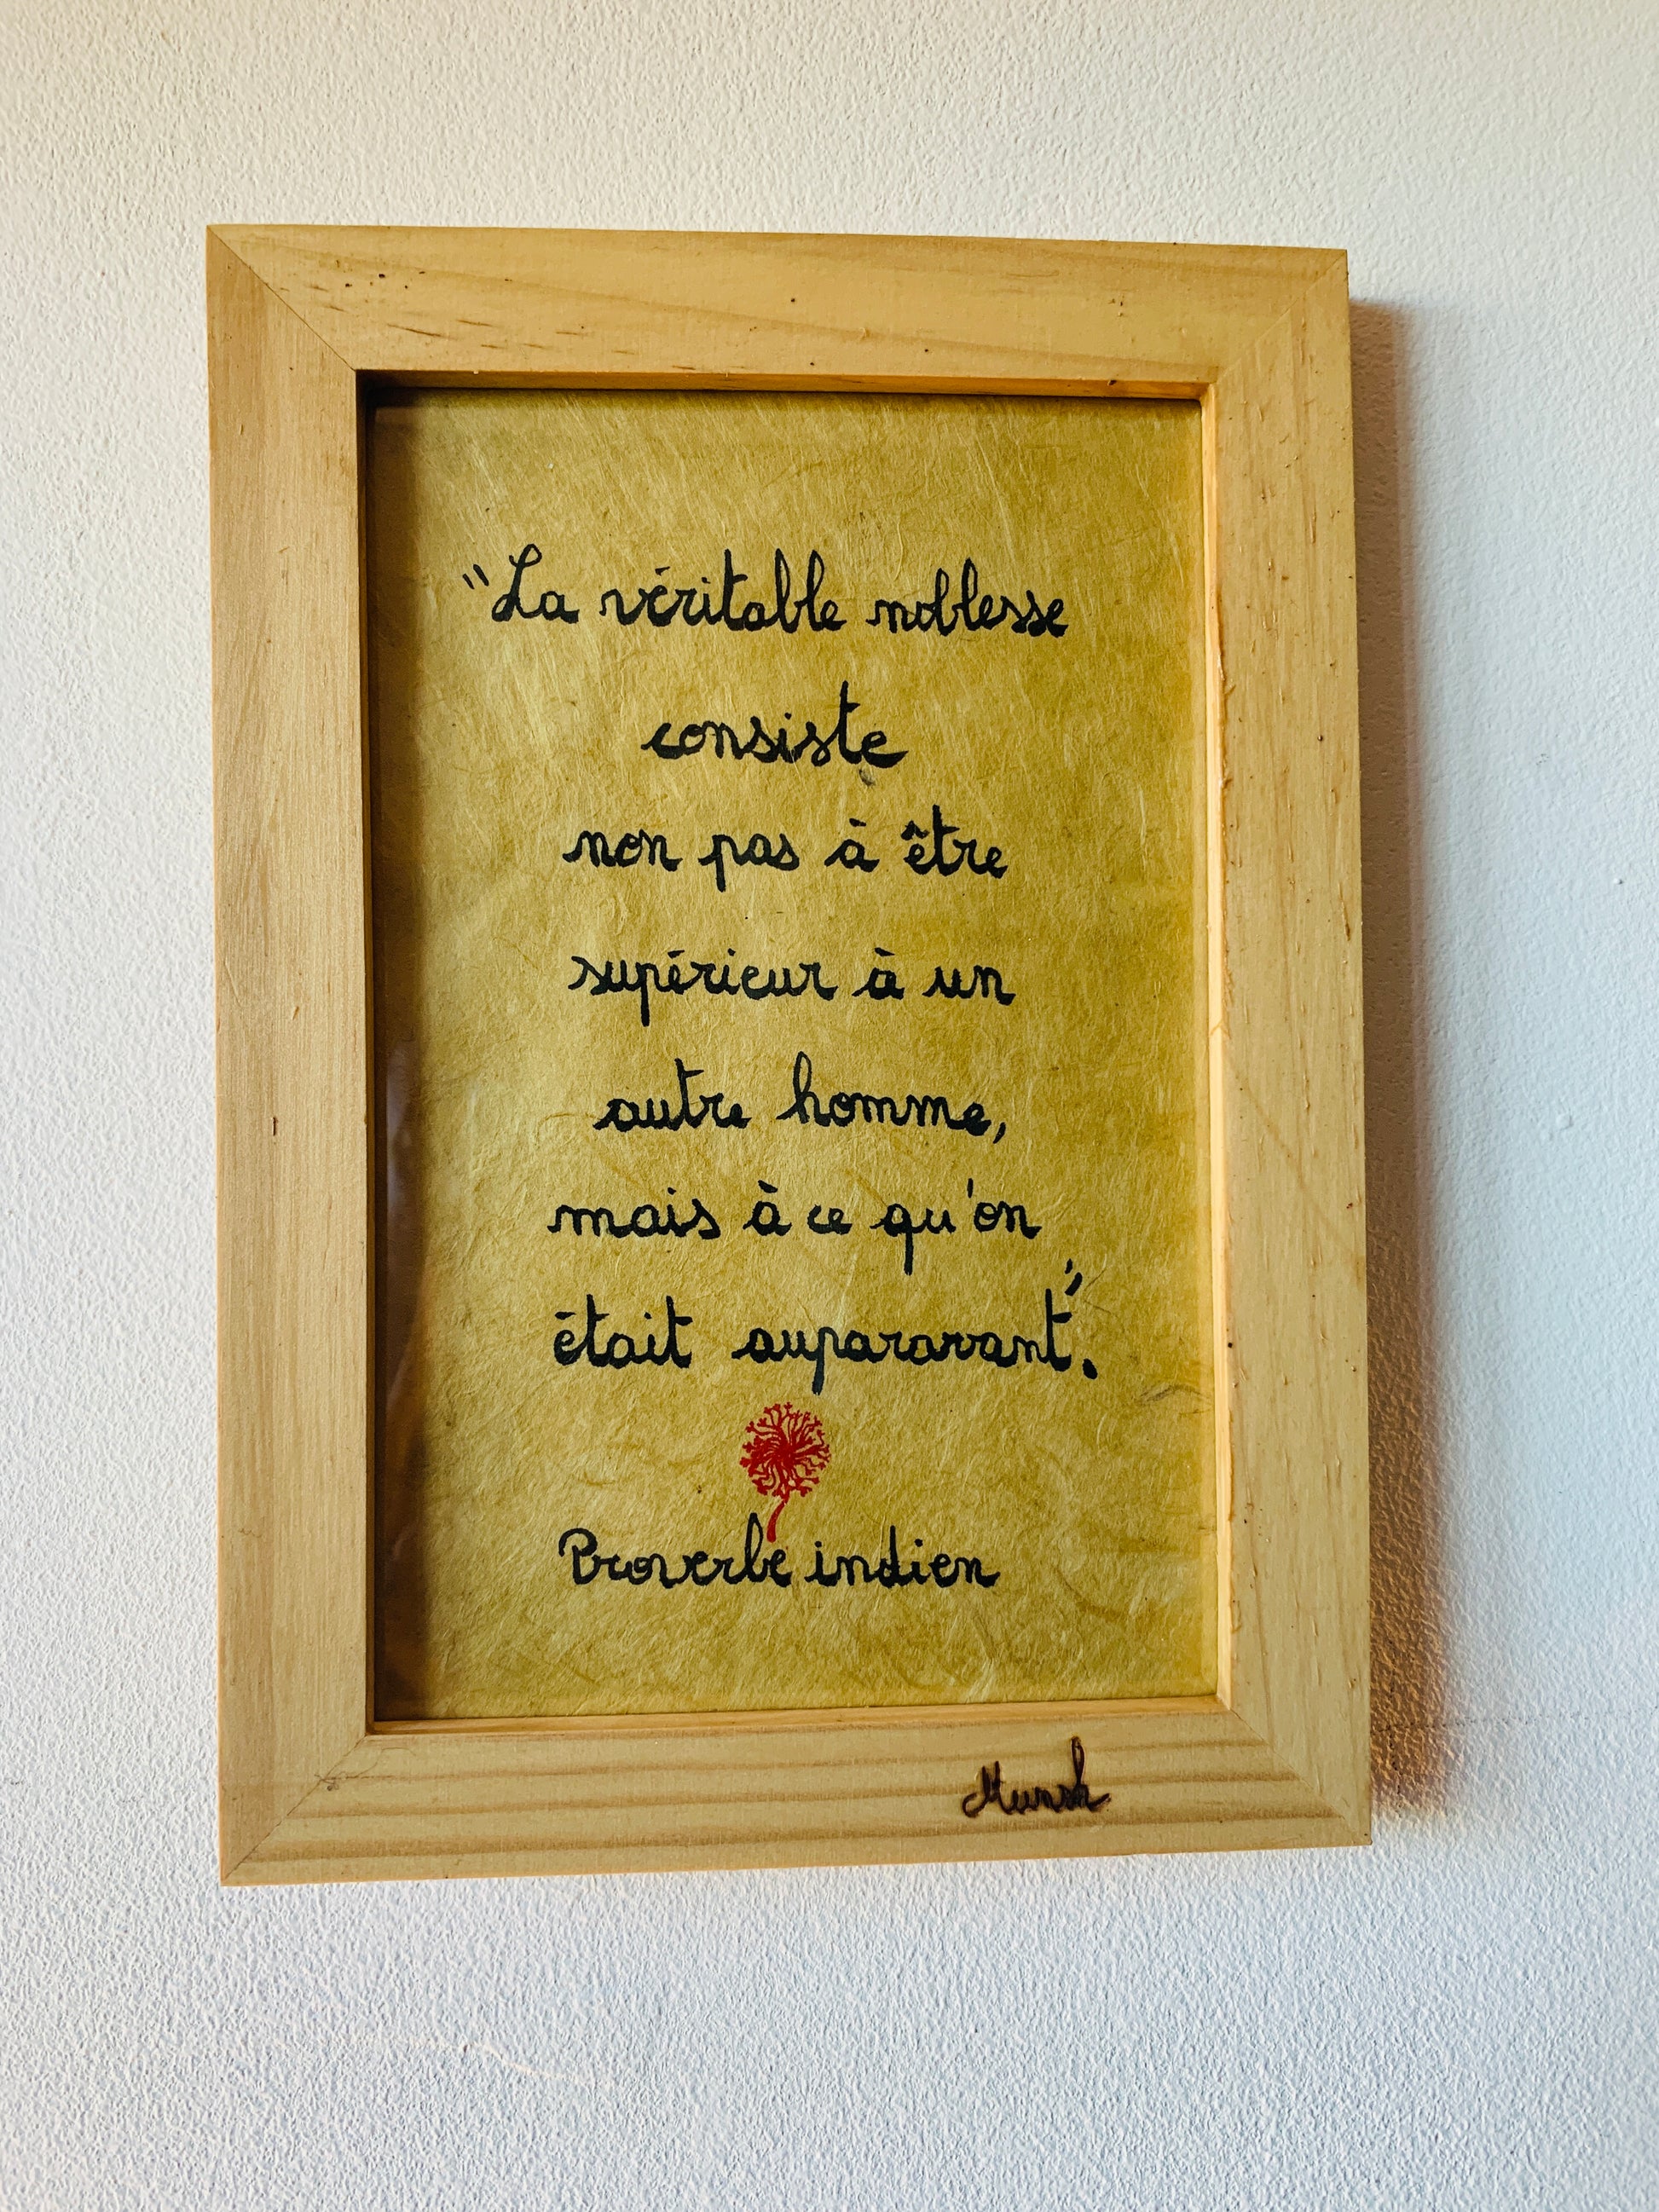 "La véritable noblesse
consiste
non pas à être
supérieur à un
autre homme,
mais à ce qu'on
était auparavant".
Proverbe indien